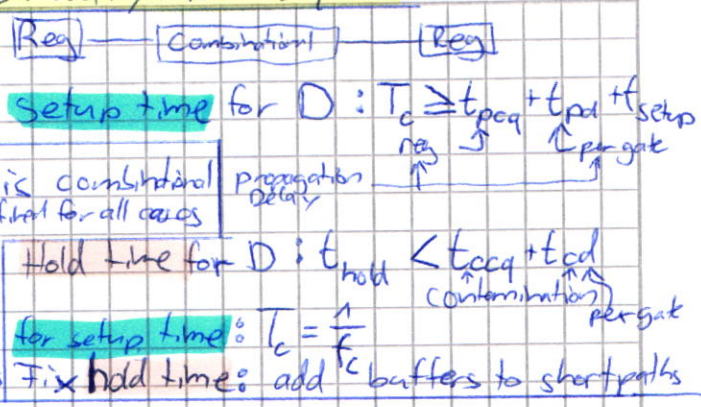 Reg Combinational Reg
Setup time for D : Tc ≥ tpcq + tpd + tsetup
reg per gate
is combinational propagation
fined for all cases Delay
Hold time for D : thold < tccq + tcd
contamination per gate
for setup time: Tc = 1/fc
Fix hold time: add buffers to short paths